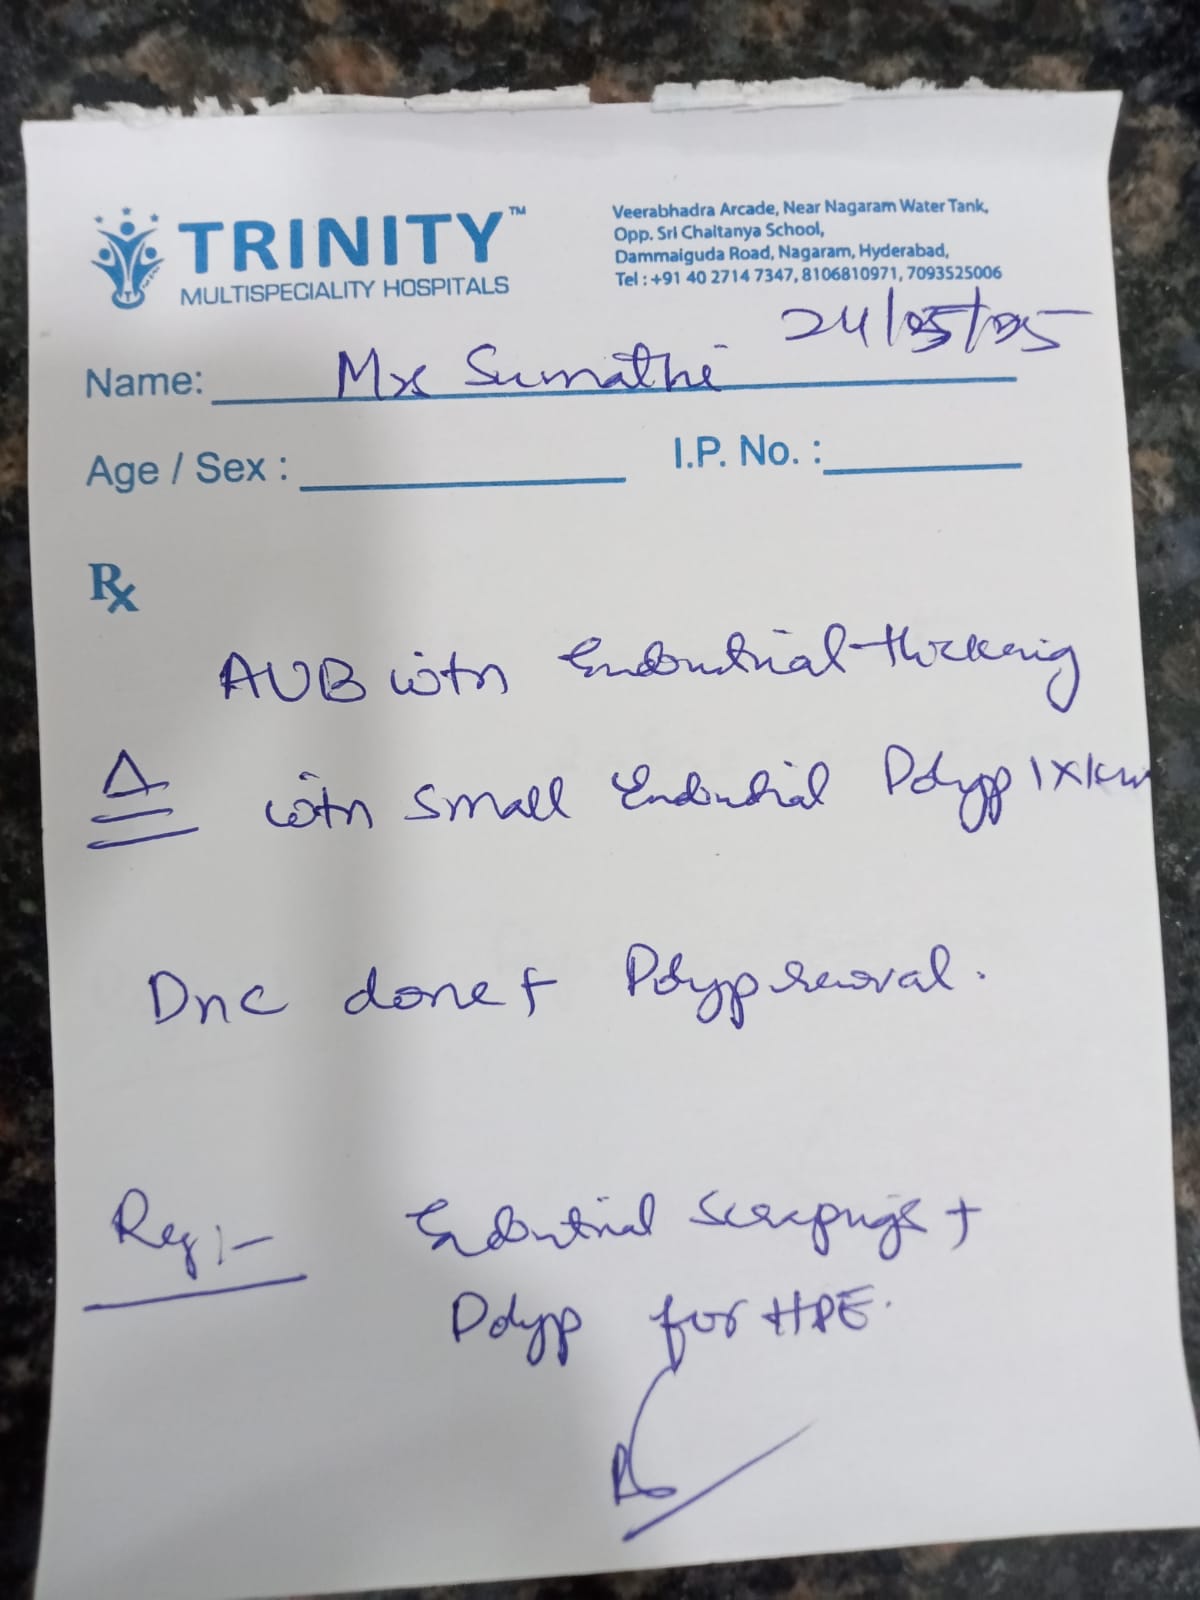 TRINITY™
MULTISPECIALITY HOSPITALS
Veerabhadra Arcade, Near Nagaram Water Tank,
Opp. Sri Chaitanya School,
Dammaiguda Road, Nagaram, Hyderabad,
Tel : +91 40 2714 7347, 8106810971, 7093525006
24/05/25
Name: Mrs Sumathi
Age / Sex :
I.P. No. :
Rx
AUB with Endometrial thickening
Δ with small Endometrial Polyp 1x1cm
Dnc done + Polyp removal.
Req:- Endometrial scrapings +
Polyp for HPE.